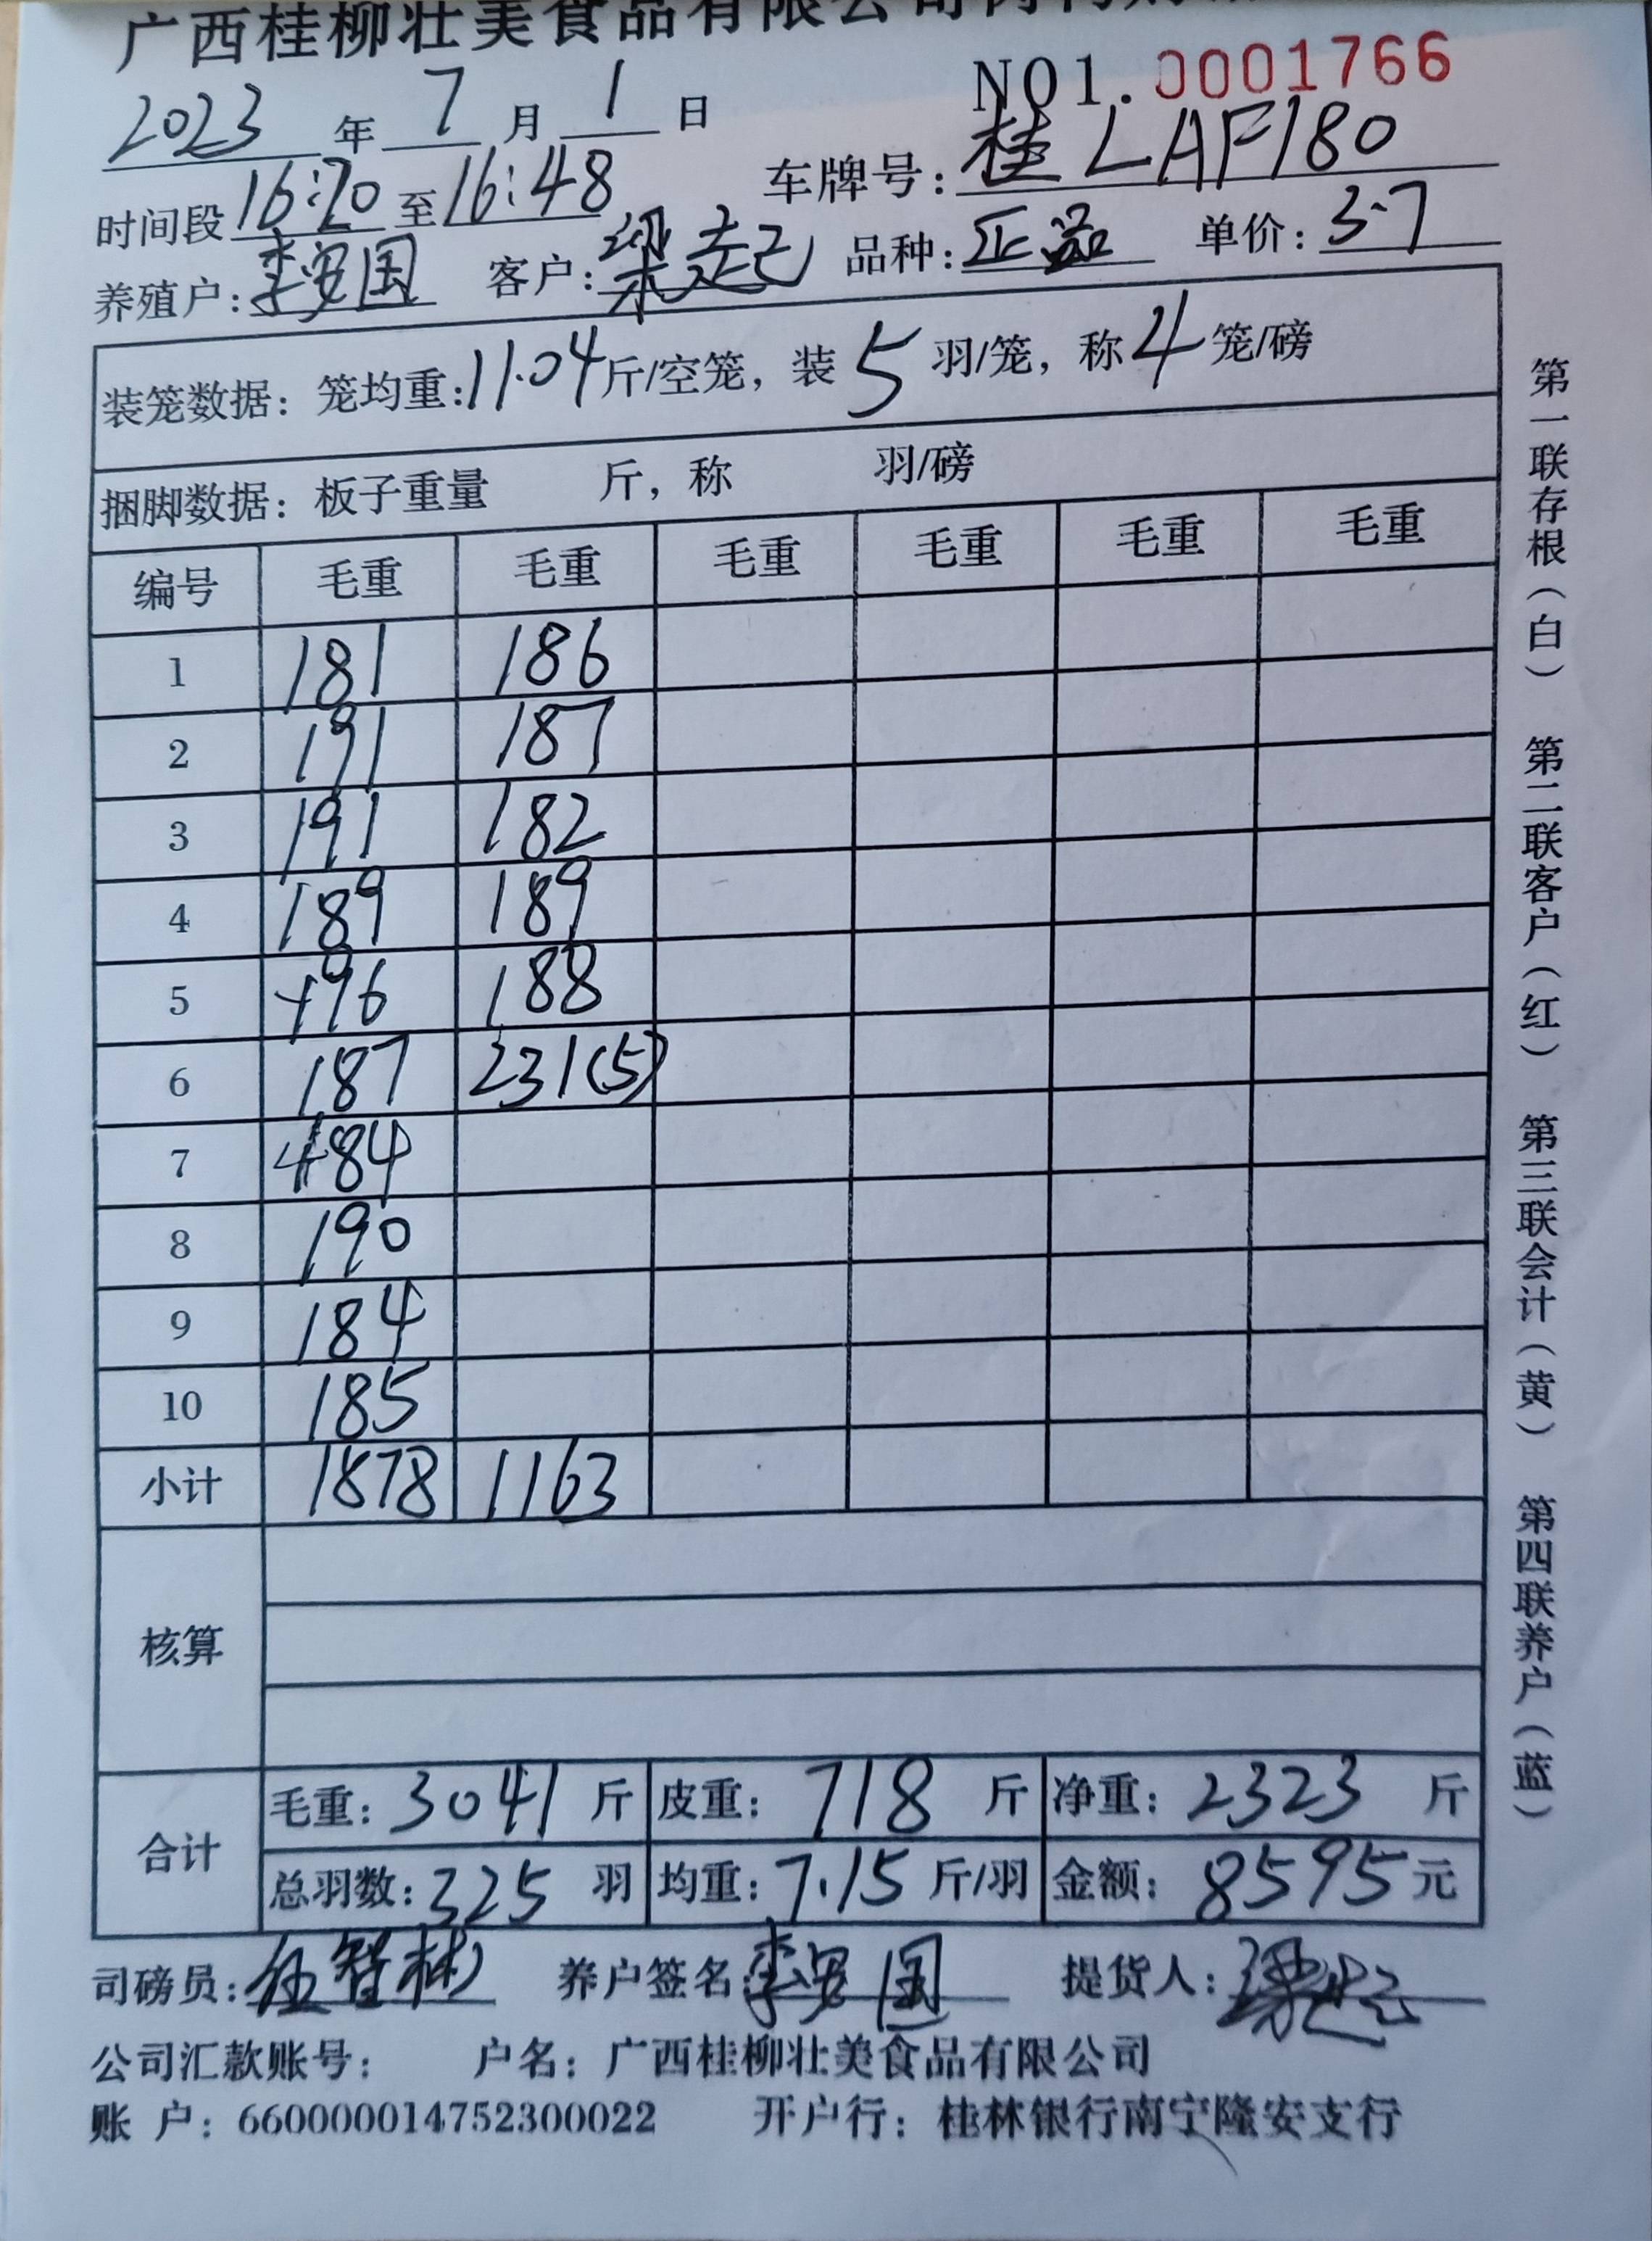 广西桂柳壮美食品有限公司
NO1.0001766
2023年7月1日
时间段16:20至16:48 车牌号:桂LAF180
养殖户:李安国 客户:梁起 品种:正品 单价:3.7
装笼数据:笼均重:11.04斤/空笼,装5羽/笼,称4笼/磅
捆脚数据:板子重量 斤,称 羽/磅
编号 毛重 毛重 毛重 毛重 毛重 毛重
1 181 186
2 191 187
3 191 182
4 189 189
5 196 188
6 187 231(5)
7 184
8 190
9 184
10 185
小计 1878 1163
核算
合计
毛重:3041斤 皮重:718斤 净重:2323斤
总羽数:325羽 均重:7.15斤/羽 金额:8595元
司磅员:伍智彬 养户签名:李安国 提货人:
公司汇款账号: 户名:广西桂柳壮美食品有限公司
账 户:660000014752300022 开户行:桂林银行南宁隆安支行
第一联存根(白) 第二联客户(红) 第三联会计(黄) 第四联养户(蓝)